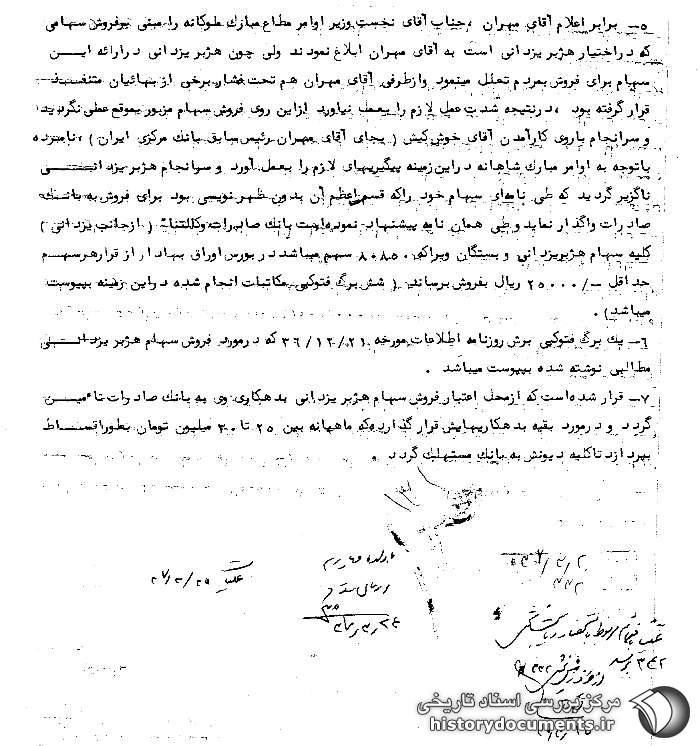 ۵- برابر اعلام آقای مهران ، جناب آقای نخست وزیر اوامر مطاع مبارک ملوکانه را مبنی برفروش سهامی
که دراختیار هژبر یزدانی است به آقای مهران ابلاغ نمودند ولی چون هژبر یزدانی درارائه ایـن
سهام برای فروش بمردم تعلل مینمود وازطرفی آقای مهران هم تحت فشار برخی از بهائیان متنفـذ
قرار گرفته بود ، درنتیجه شدت عمل لازم را بعمل نیاورد ازاین روی فروش سهام مزبور بموقع عملی نگردید
و سرانجام باروی کارآمدن آقای خوش کیش ( بجای آقای مهران رئیس سابق بانک مرکزی ایران ) ، نامبرده
باتوجه به اوامر مبارک شاهانه دراین زمینه پیگیریهای لازم را بعمل آورد و سرانجام هژبر یزدانـی
ناگزیر گردید که طی نامه‌ای سهام خود راکه قسم اعظم آن بدون ظهر نویسی بود برای فروش به بانـک
صادرات واگذار نماید و طی همان نامه پیشنهاد نموده است بانک صادرات وکالتنا ( ازجانب یزدانی )
کلیه سهام هژبر یزدانی و بستگان ویراکه ۸۰۸۵۰ سهم میباشد در بورس اوراق بهادار از قرار هرسهم
حداقل -/۲۵۰۰۰ ریال بفروش برساند . ( شش برگ فتوکپی مکاتبات انجام شده دراین زمینه بپیوست
میباشد ) .
۶- یک برگ فتوکپی برش روزنامه اطلاعات مورخه ۳۶/۱۲/۲۱ که درمورد فروش سهام هژبر یزدانـی
مطالبی نوشته شده بپیوست میباشد .
۷- قرار شده است که ازمحل اعتبار فروش سهام هژبر یزدانی بدهکاری وی به بانک صادرات تامین
گردد و درمورد بقیه بدهکاریهایش قرار گذارده که ماهیانه بین ۲۵ تا ۳۰ میلیون تومان بطور اقساط
بپردازد تاکلیه دیونش به بانک مستهلک گردد .
مرکز بررسی اسناد تاریخی
historydocuments.ir